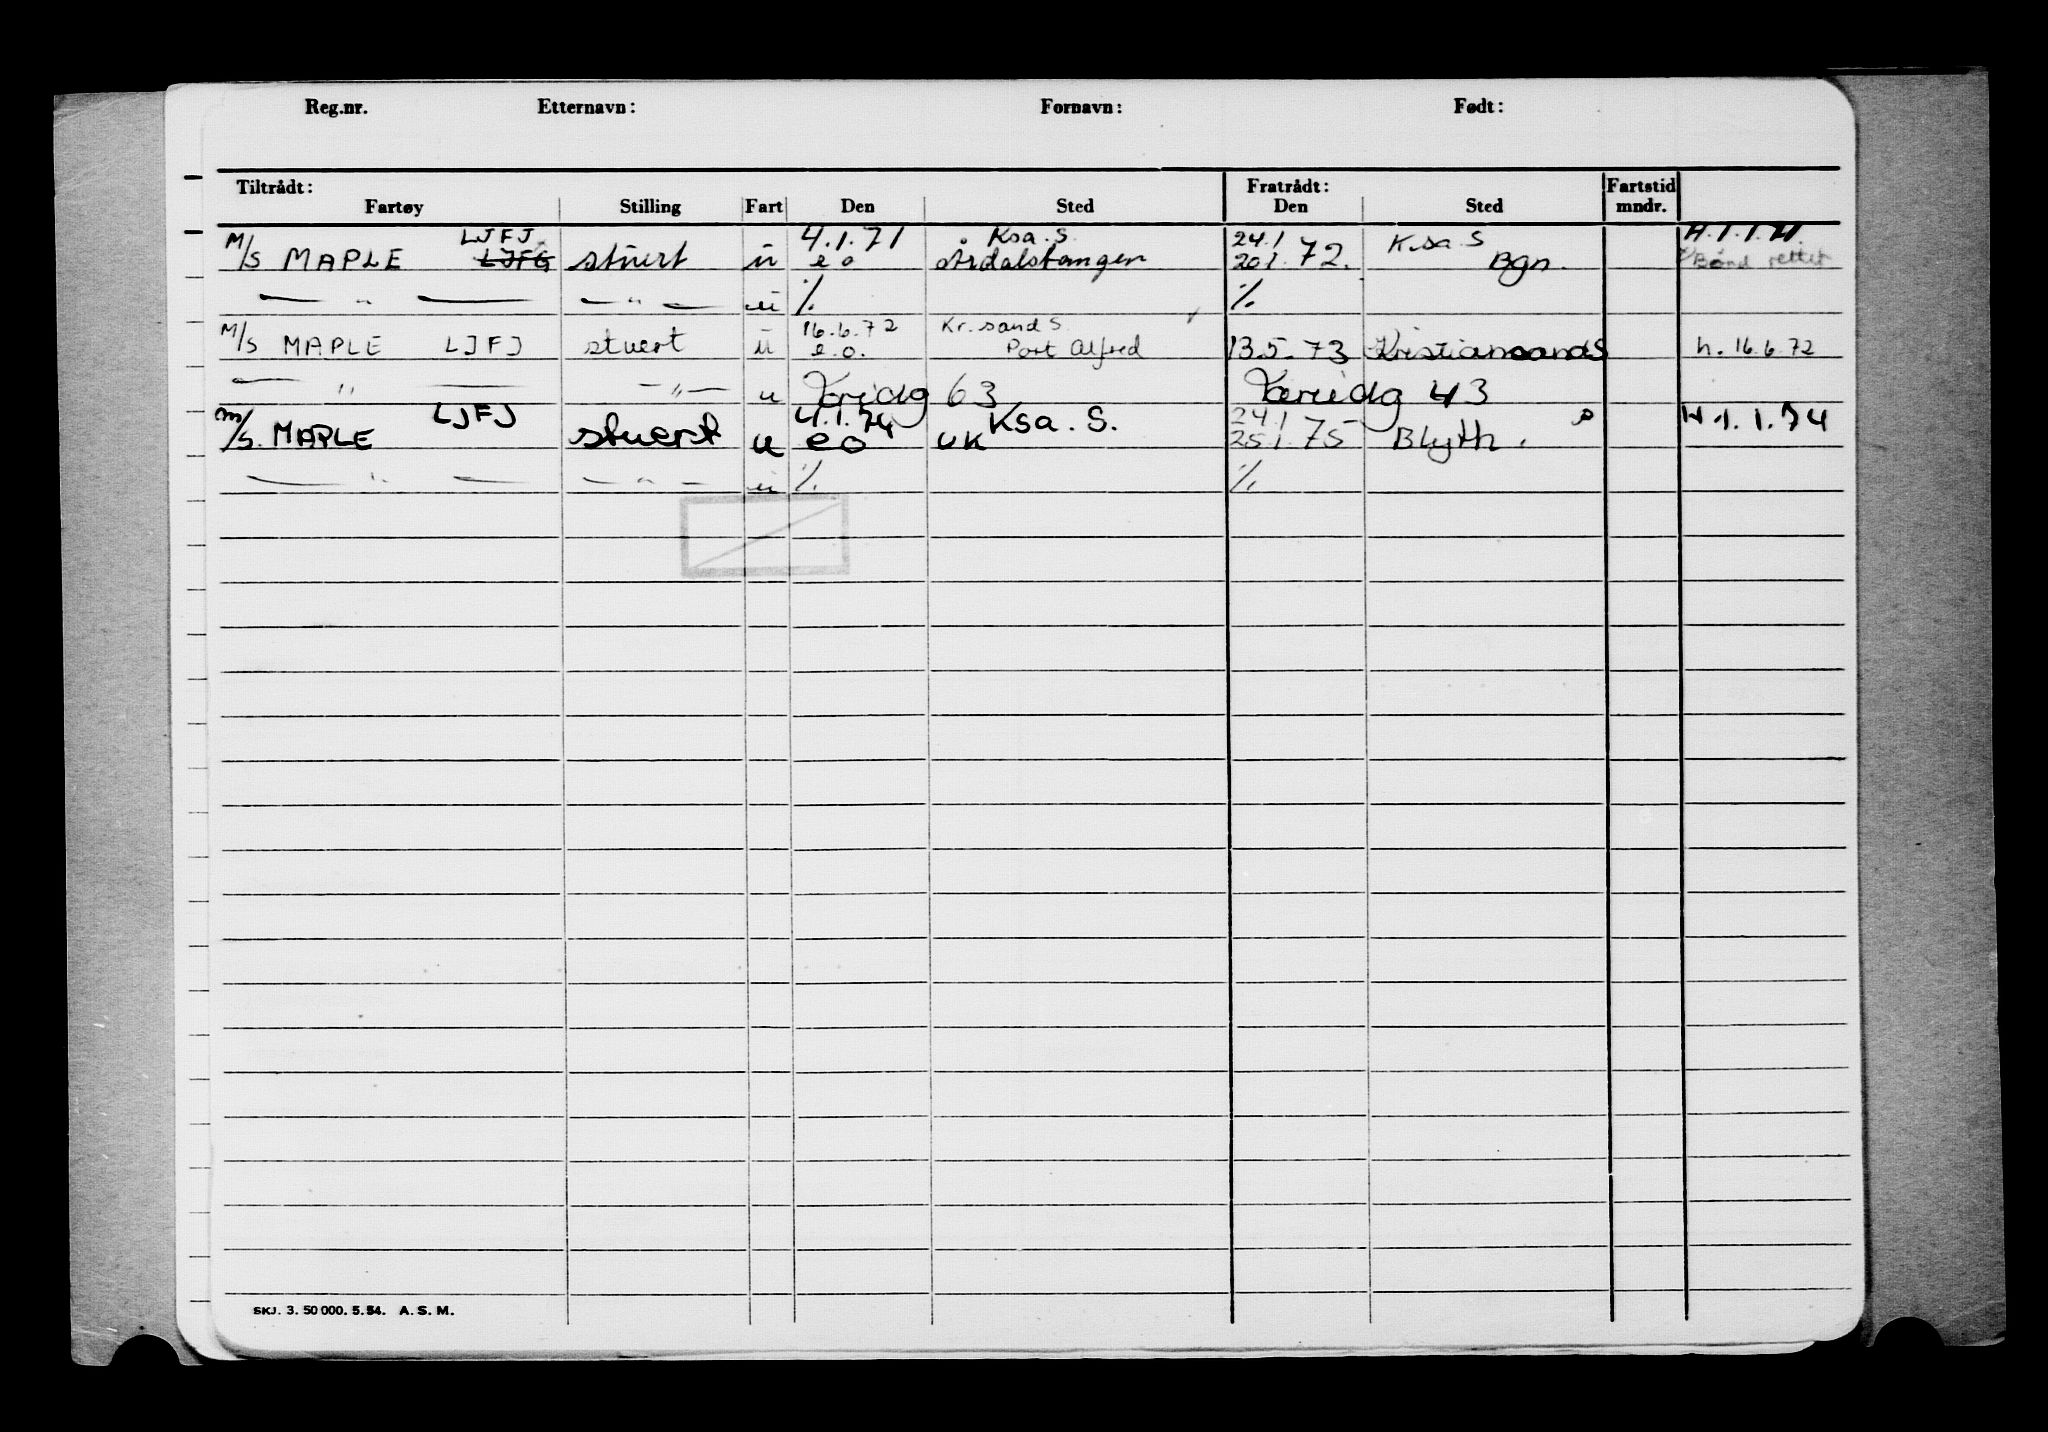 Reg.nr. Etternavn: Fornavn: Født:
Tiltrådt: Fratrådt: Fartstid
Fartøy Stilling Fart Den Sted Den Sted mndr.
LJFJ 4.1.71 Ksa. S. 24.1 K.sa S H.1.1.71
M/S MAPLE LJFG stuert u e o Årdalstangen 20.1.72. Bgn. Bånd rettet
— " — — " — u % %
16.6.72 Kr. sand S.
M/S MAPLE LJFJ stuert u e.o. Port Alfred 13.5.73 Kristiansand S h. 16.6.72
— " — — " — u 63 43
LJFJ 4.1.74 Ksa. S. 24.1
M/S. MAPLE stuert u e o UK 25.1.75 Blyth. H 1.1.74
— " — — " — u % %
SKJ. 3. 50 000. 5. 54. A. S. M.